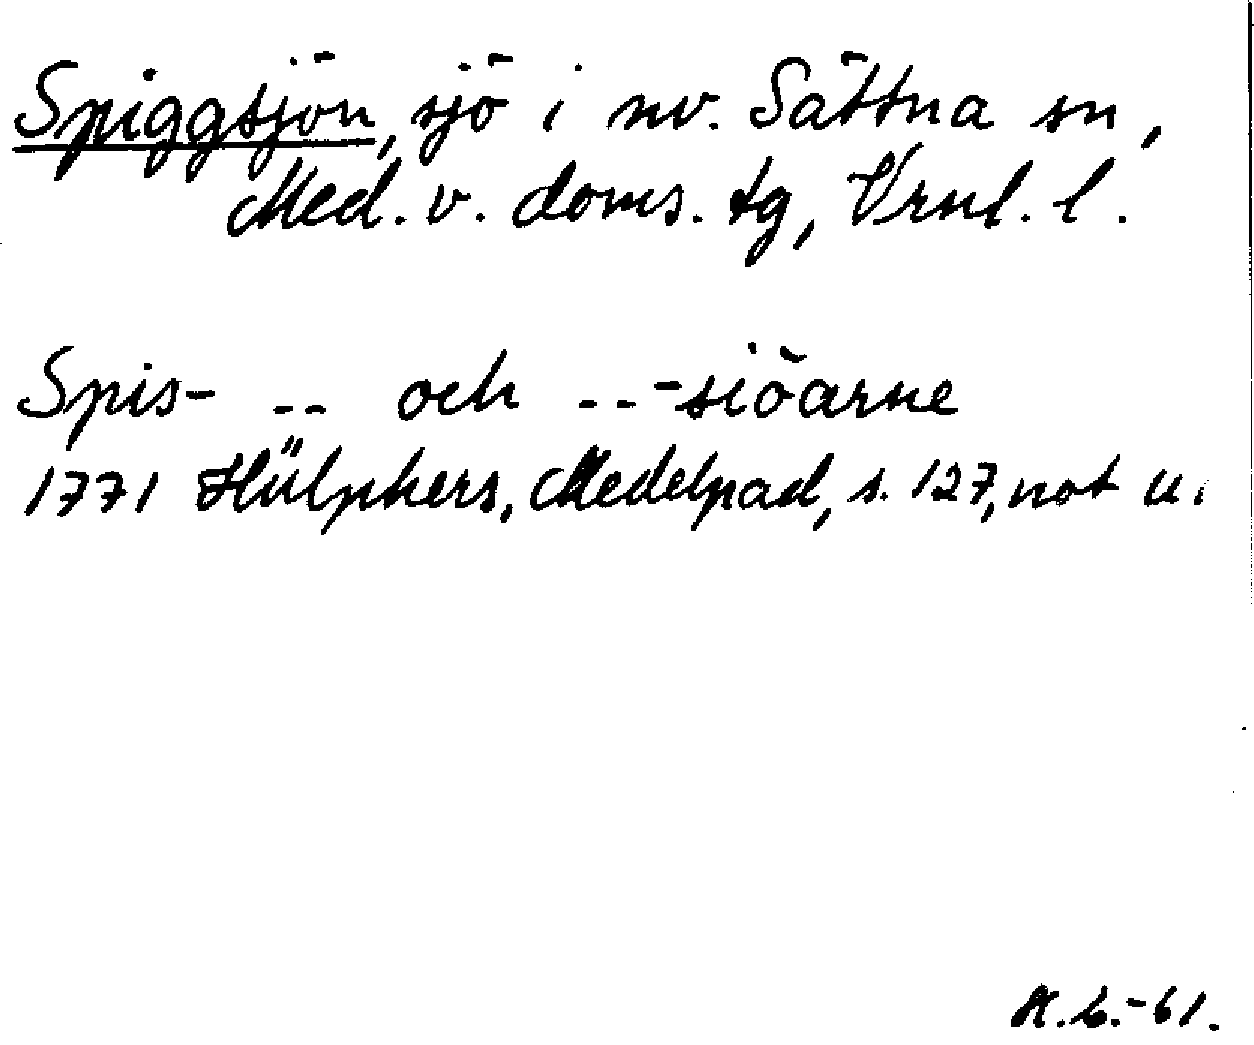 Spiggsjön, sjö i nv. Sättna sn,
Med. v. doms. tg, Vrnl. l.
Spis- -- och -- -siöarne
1771 Hülphers, Medelpad, s. 127, not u.
-61.